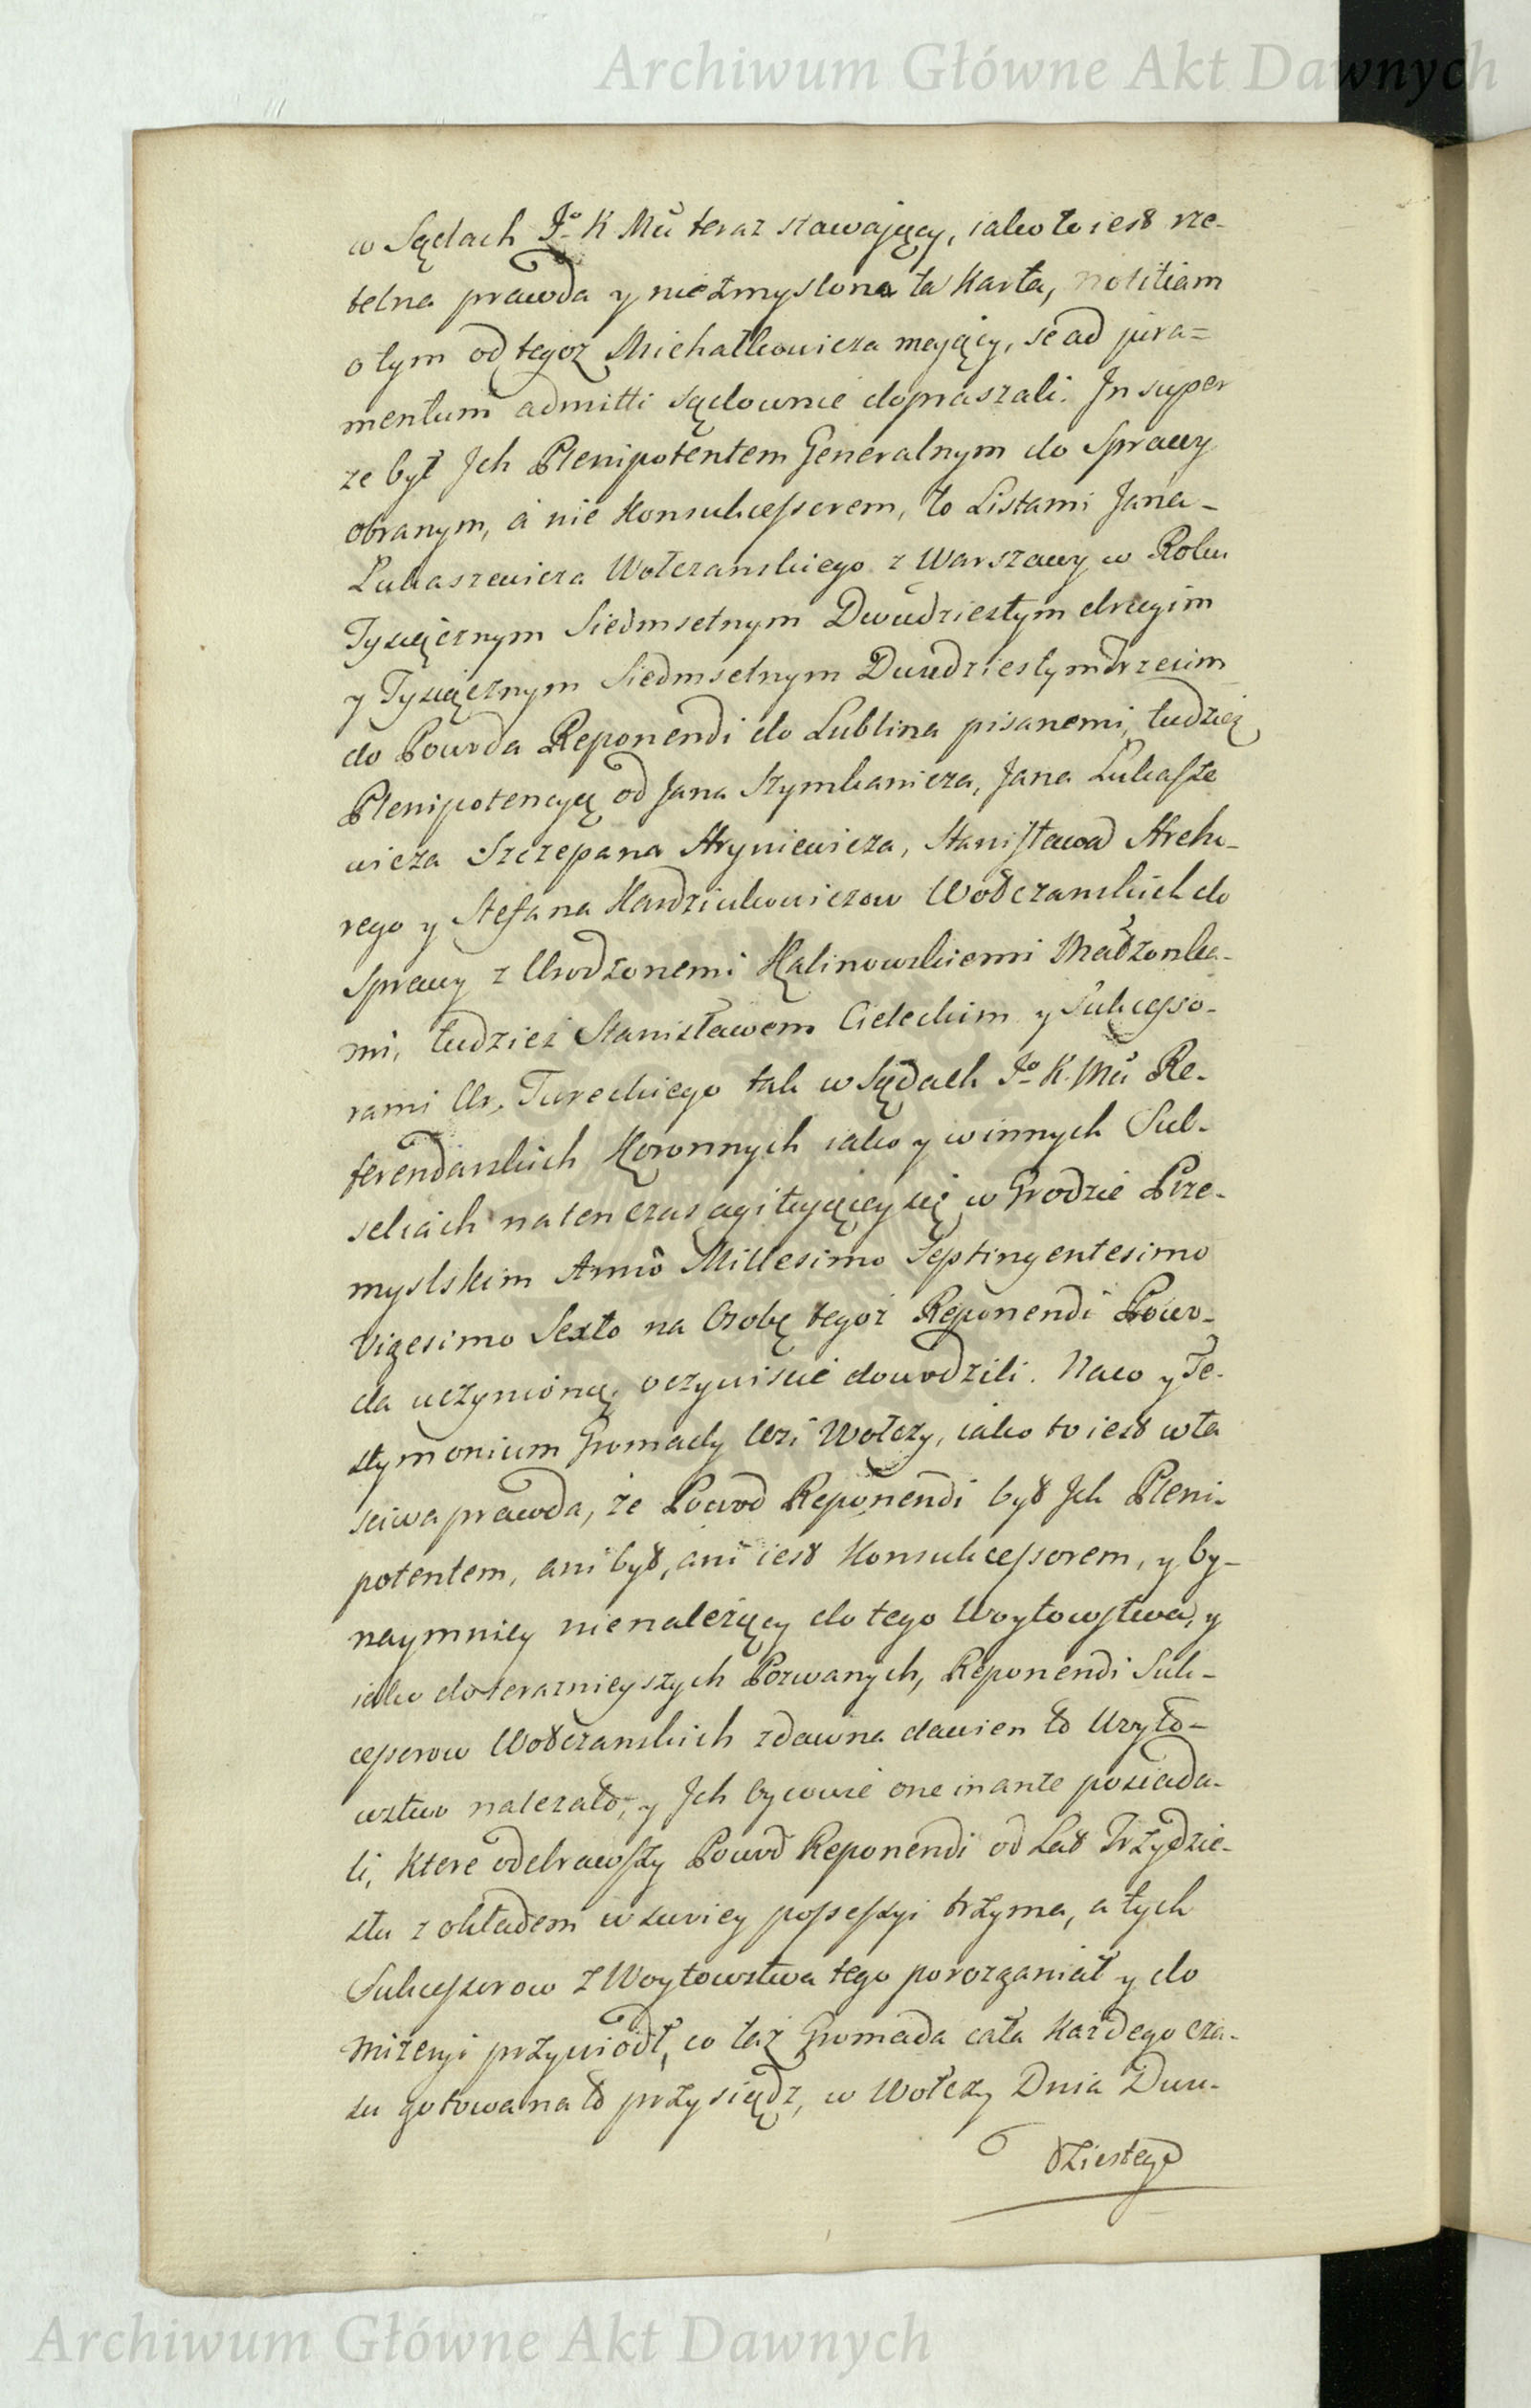 Archiwum Główne Akt Dawnych
w Sądach Jo K Mci teraz stawaiący, iako to iest rze-
telna prawda y nieżmyslona ta Karta, notitiam
o tym od tegoz Michałkowicza maiący, se ad jura=
mentum admitti sądownie dopraszali. In super
ze był Jch Plenipotentem Generalnym do Sprawy
obranym, a nie Konsukcessorem, to Listami Jana
Łukaszewicza Wołczanskiego z Warszawy w Roku
Tysiącznym Siedmsetnym Dwudziestym drugim
y Tysiącznym Siedmsetnym Dwudziestym trzecim
do Powoda Reponendi do Lublina pisanemi, tudziez
Plenipotencyą od Jana Szymkanicza, Jana Łukasze
wicza Szczepana Hryniewicza, Stanisława
rego y Stefana Wołczanskich do
Sprawy z Urodzonemi Kalinowskiemi Małżonka-
mi, tudziez Stanisławem Cieleckim y Sukcesso-
rami Ur. Tureckiego tak w Sądach Jo K. Mci Re-
ferendarskich Koronnych iako y w innych Sub-
seliach na ten czas agituiącey się w Grodzie Prze-
myslskim Anno Millesimo Septingentesimo
Vigesimo Sexto na Osobę tegoż Reponendi Powo-
da uczynioną, oczywiscie dowodzili. Naco y Te-
stymonium Gromady Wsi Wołczy, iako to iest wła
sciwa prawda, że Powod Reponendi był Jch Pleni-
potentem, ani był, ani iest Konsukcessorem, y by-
naymniey nienależący do tego Woytowstwa, y
iako do teraznieyszych Pozwanych, Reponendi Suk-
cessorow Wołczanskich zdawna dawien to Woyto-
wstwo nalezało, y Jch oycowie one in ante posiada-
li, ktore odebrawszy Powod Reponendi od Lat Trzydzie-
stu z okładem w swoiey possessyi trzyma, a tych
Sukcessorow z Woytowstwa tego porozganiał y do
mizeryi przywiodł, co taż Gromada cała każdego cza-
su gotowa na to przysiądz, w Wołczy Dnia Dwu-
dziestego
Archiwum Główne Akt Dawnych